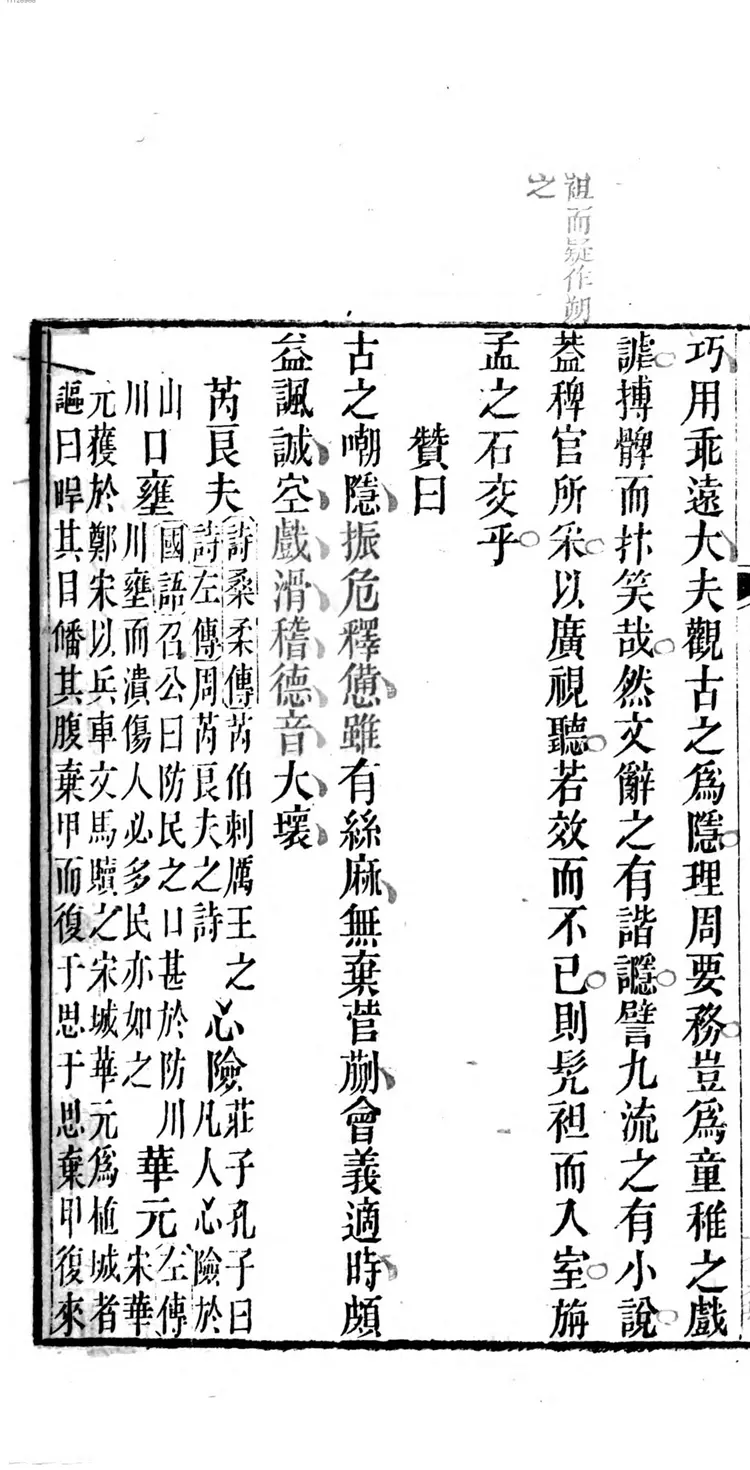 袒而疑作朔
之
巧用乖遠大夫觀古之爲隱理周要務豈爲童稚之戲
謔搏髀而抃笑哉然文辭之有諧讔譬九流之有小說
葢稗官所采以廣視聽若效而不已則髡袒而入室旃
孟之石交乎
贊曰
古之嘲隱振危釋憊雖有絲麻無棄菅蒯會義適時頗
益諷誡空戲滑稽德音大壞
芮良夫
詩桑柔傳芮伯刺厲王之
詩左傳周芮良夫之詩
心險
莊子孔子曰
凡人心險於
山川
口壅
國語召公曰防民之口甚於防川
川壅而潰傷人必多民亦如之
華元
左傳
宋華
元獲於鄭宋以兵車文馬贖之宋城華元爲植城者
謳曰睅其目皤其腹棄甲而復于思于思棄甲復來